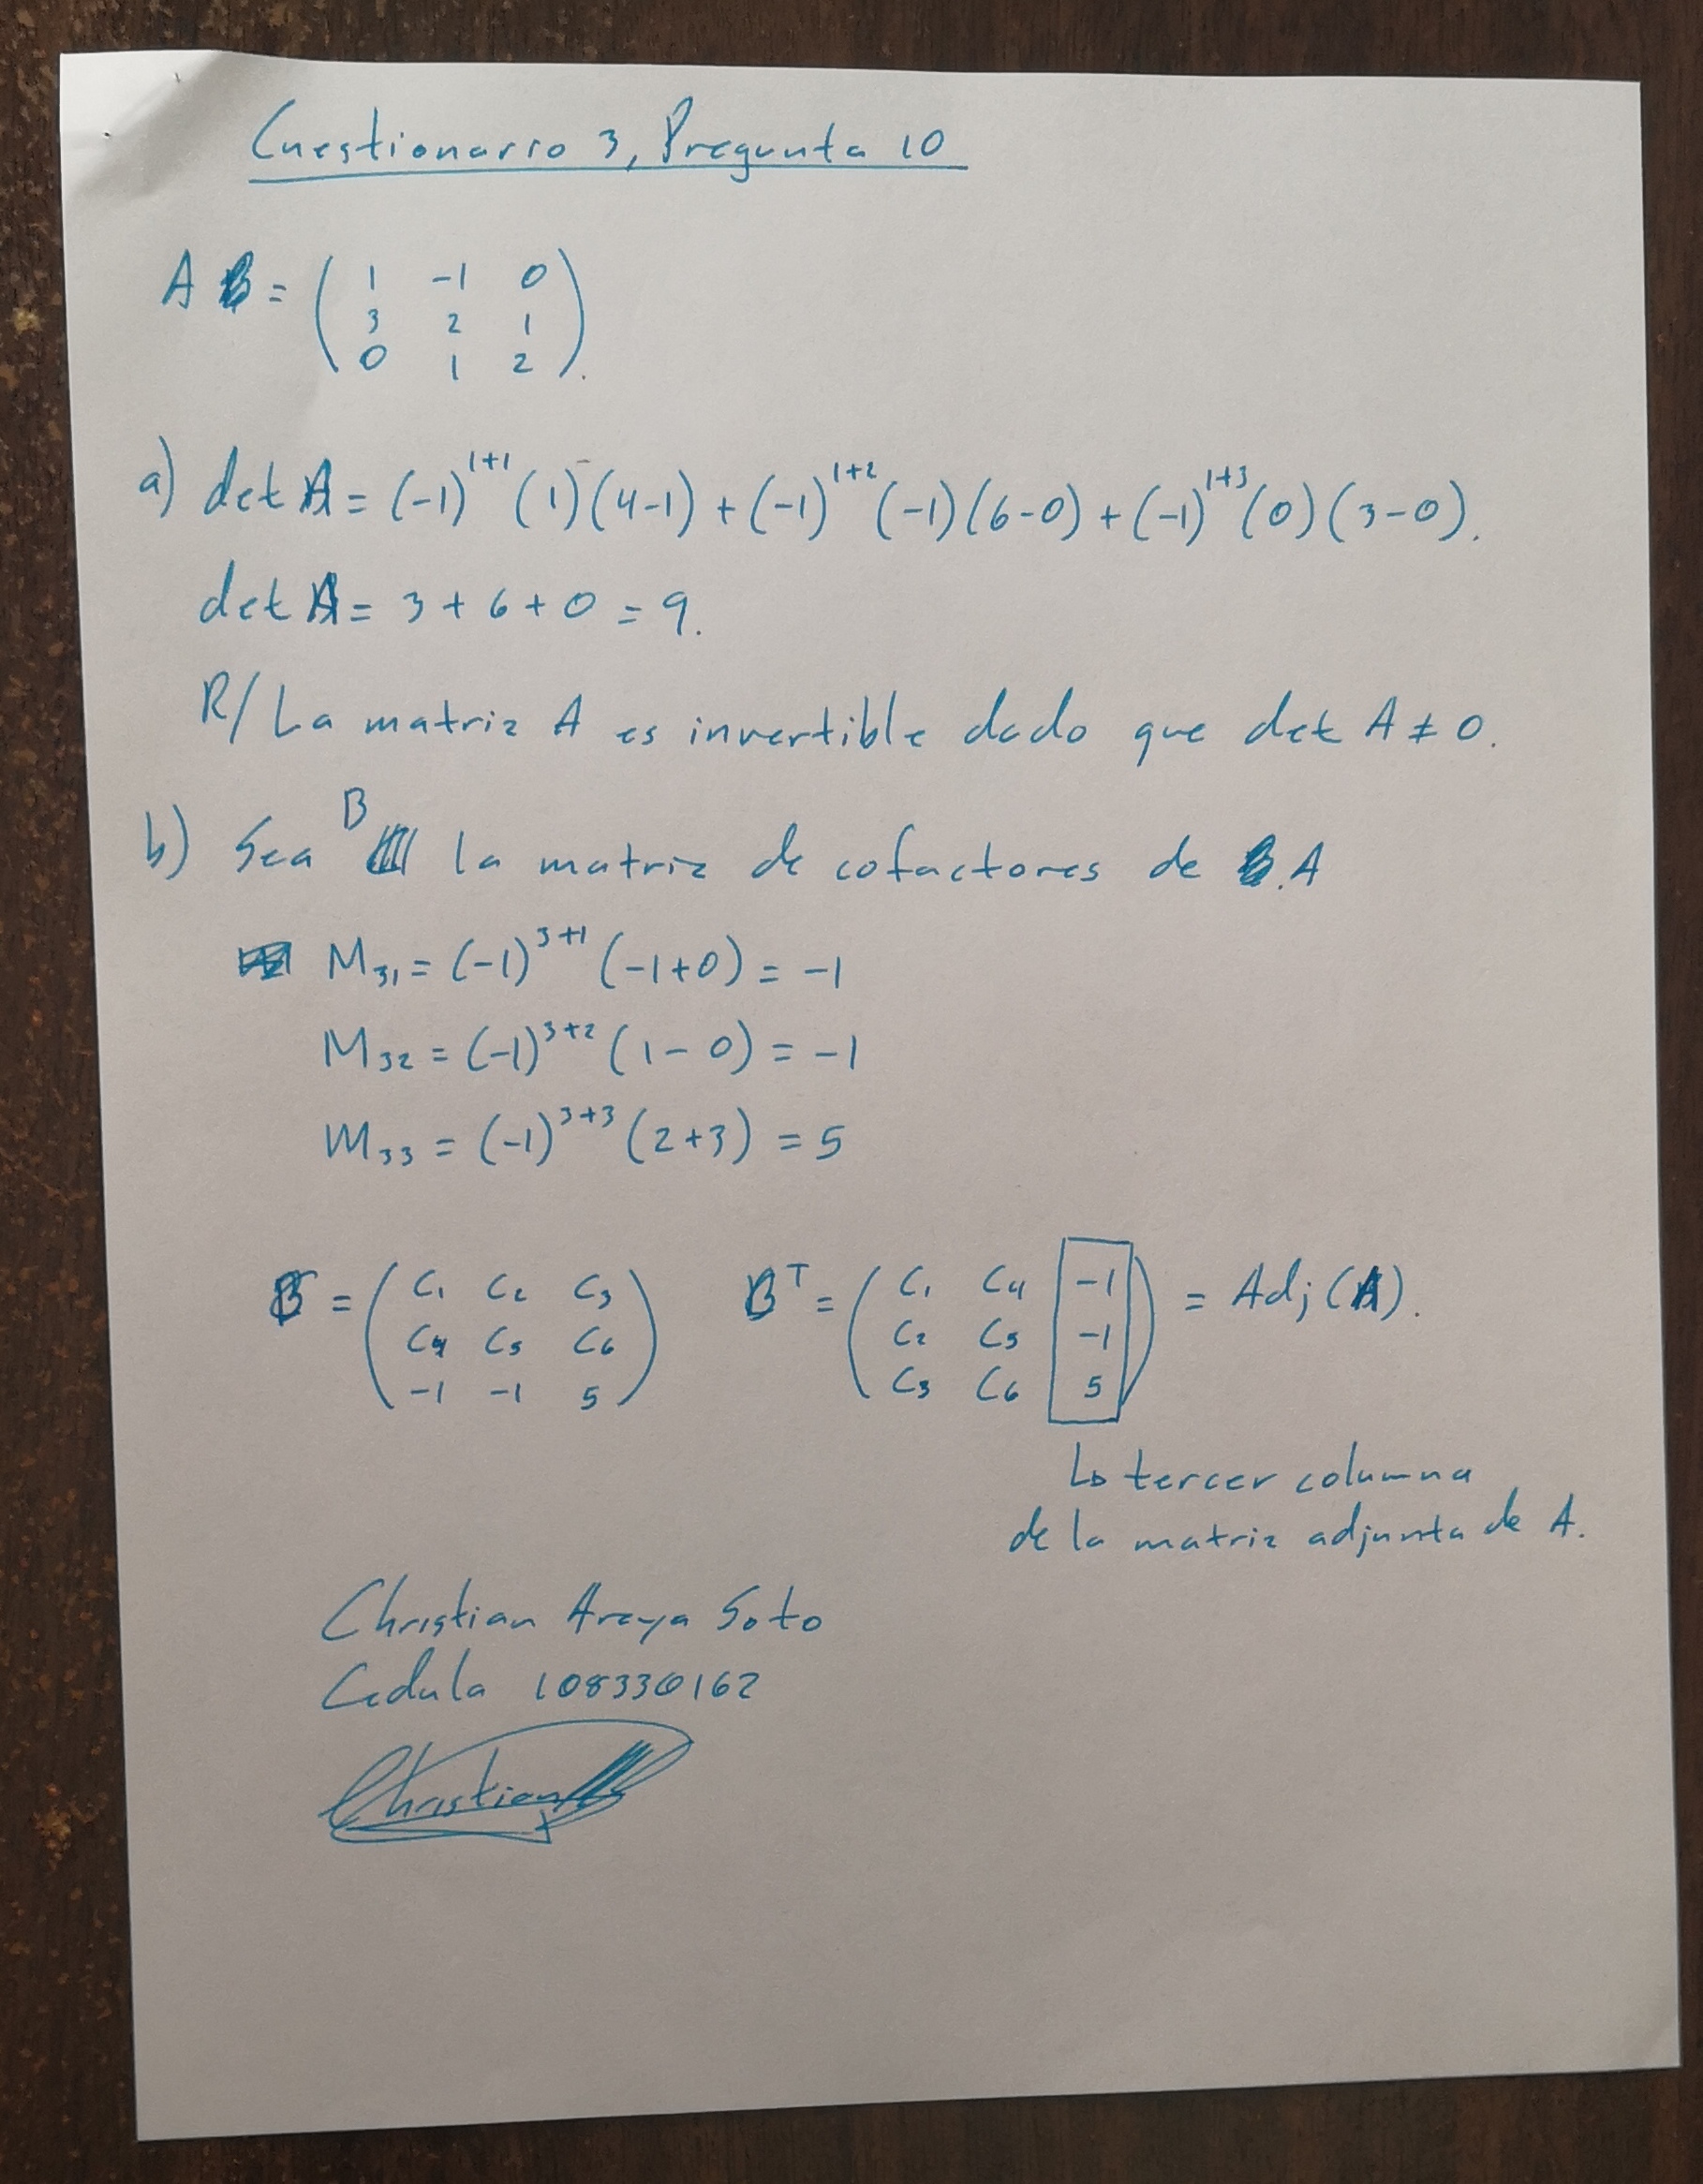 Cuestionario 3, Pregunta 10
A = ( 1 -1 0
3 2 1
0 1 2 ).
a) det A = (-1)^{1+1} (1)(4-1) + (-1)^{1+2} (-1)(6-0) + (-1)^{1+3} (0)(3-0).
det A = 3 + 6 + 0 = 9.
R/ La matriz A es invertible dado que det A ≠ 0.
b) Sea B la matriz de cofactores de A
M₃₁ = (-1)^{3+1} (-1+0) = -1
M₃₂ = (-1)^{3+2} (1-0) = -1
M₃₃ = (-1)^{3+3} (2+3) = 5
B = ( C₁ C₂ C₃ B^T = ( C₁ C₄ -1 ) = Adj(A).
C₄ C₅ C₆ C₂ C₅ -1
-1 -1 5 ) C₃ C₆ 5
La tercer columna
de la matriz adjunta de A.
Christian Araya Soto
Cedula 108330162
Christian